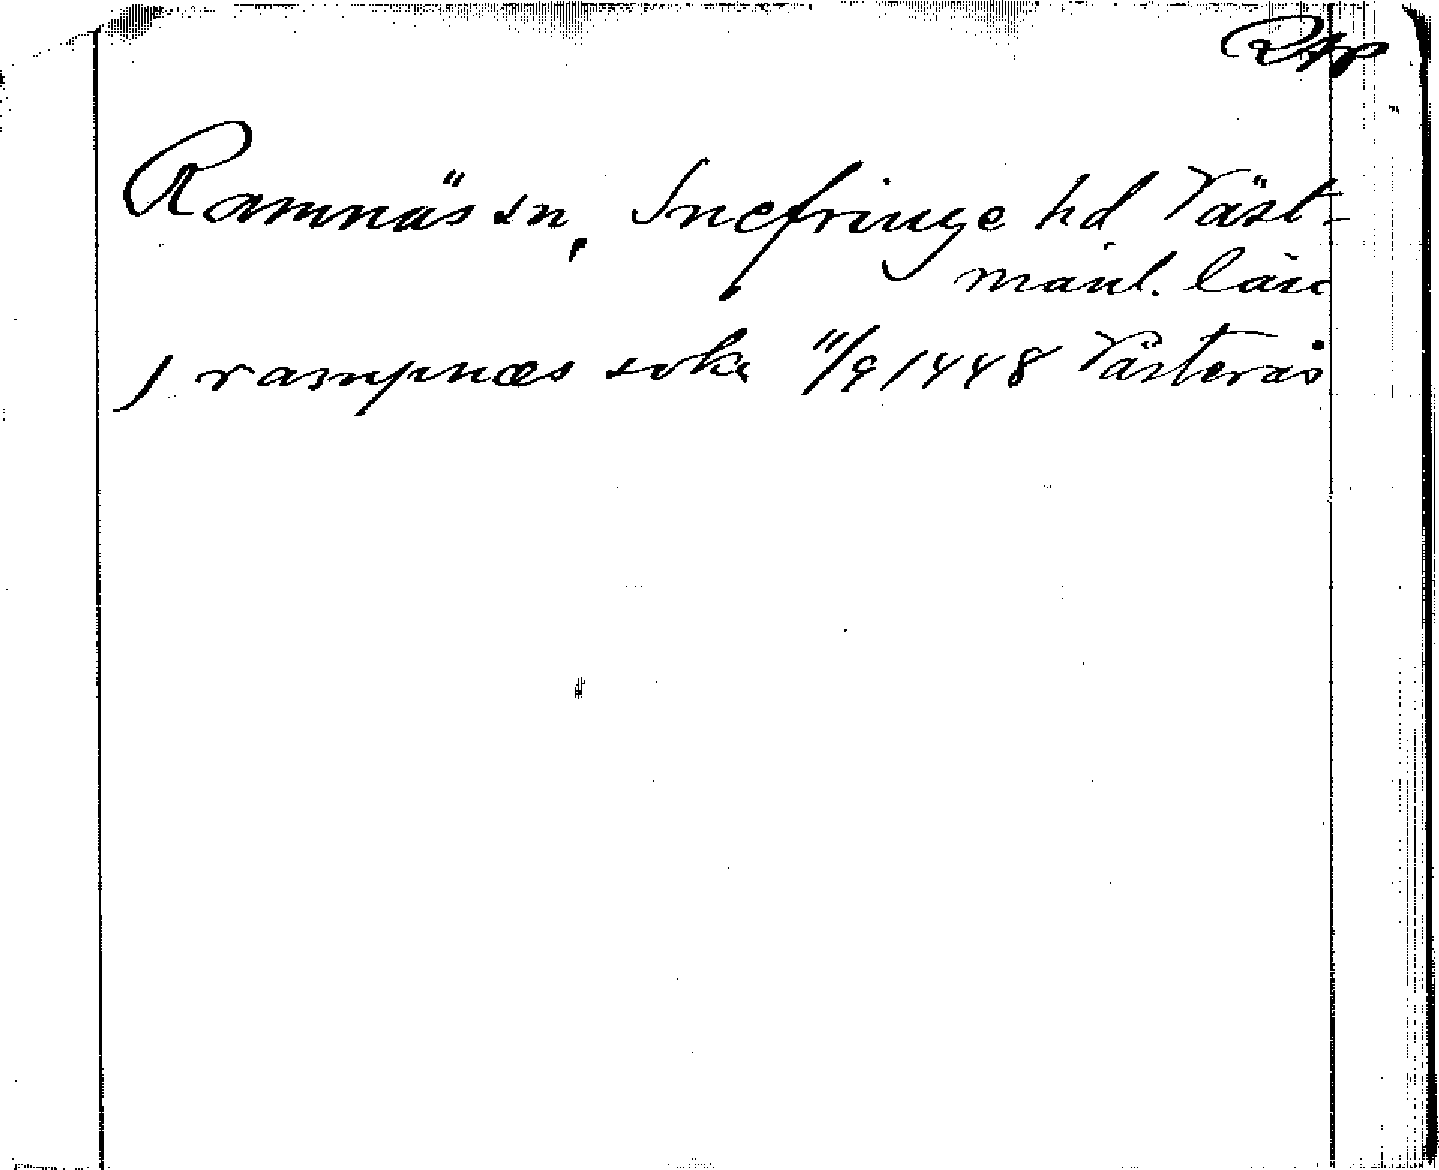 Rap
Ramnäs sn, Snefringe hd Väst-
manl. län
J rampnæs sokn 11/9 1448 Västerås